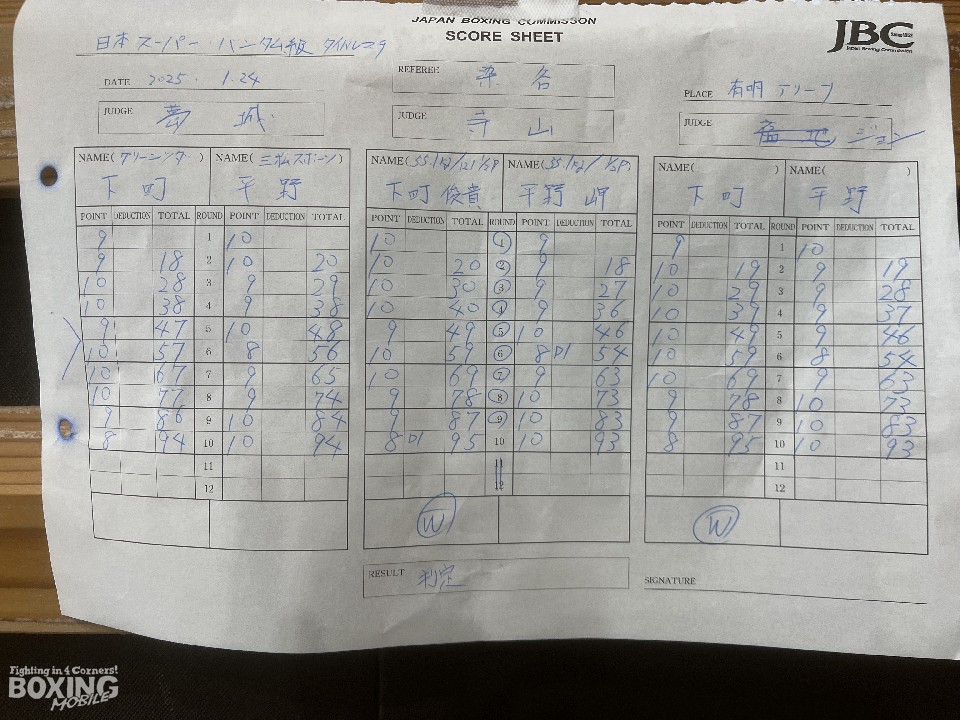 JAPAN BOXING COMMISSON
SCORE SHEET
JBC
Since 1952
Japan Boxing Commission
日本スーパーバンタム級 タイトルマッチ
DATE 2025. 1.24
REFEREE 染谷
PLACE 有明アリーナ
JUDGE 葛城
JUDGE 寺山
JUDGE 福地 ジョン
NAME(グリーンツダ) NAME(三松スポーツ)
下町 平野
POINT DEDUCTION TOTAL ROUND POINT DEDUCTION TOTAL
9 1 10
9 18 2 10 20
10 28 3 9 29
10 38 4 9 38
9 47 5 10 48
10 57 6 8 56
10 67 7 9 65
10 77 8 9 74
9 86 9 10 84
8 94 10 10 94
11
12
NAME( ) NAME( )
下町俊貴 平野岬
POINT DEDUCTION TOTAL ROUND POINT DEDUCTION TOTAL
10 1 9
10 20 2 9 18
10 30 3 9 27
10 40 4 9 36
9 49 5 10 46
10 59 6 8 D1 54
10 69 7 9 63
9 78 8 10 73
9 87 9 10 83
8 D1 95 10 10 93
11
12
W
NAME( ) NAME( )
下町 平野
POINT DEDUCTION TOTAL ROUND POINT DEDUCTION TOTAL
9 1 10
10 19 2 9 19
10 29 3 9 28
10 39 4 9 37
10 49 5 9 46
10 59 6 8 54
10 69 7 9 63
9 78 8 10 73
9 87 9 10 83
8 95 10 10 93
11
12
W
RESULT 判定
SIGNATURE
Fighting in 4 Corners!
BOXING
MOBILE